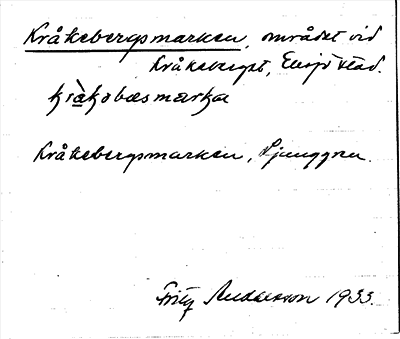 Kråkebergsmarken, området vid
Kråkeberget, stad.
kràkobæsmarka
Kråkebergsmarken, Ljunggren.
Fritz Andersson 1933.